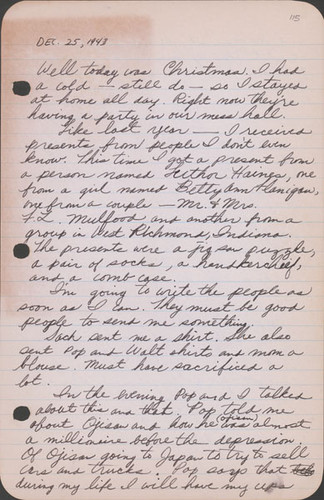 115
DEC. 25, 1943
Well today was Christmas. I had
a cold — still do — so I stayed
at home all day. Right now they're
having a party in our mess hall.
Like last year — I received
presents from people I don't even
know. This time I got a present from
a person named Haines, one
from a girl named Betty Ann Flanigan,
one from a couple — Mr. & Mrs.
F.L. Mulfood and another from a
group in West Richmond, Indiana.
The presents were a jig saw puzzle,
a pair of socks, a handkerchief,
and a comb case.
I'm going to write the people as
soon as I can. They must be good
people to send me something.
Sach sent me a shirt. She also
sent Pop and Walt shirts and mom a
blouse. Must have sacrificed a
lot.
In the evening Pop and I talked
about this and that. Pop told me
about Ojisan and how he (Ojisan) was almost
a millionaire before the depression.
Of Ojisan going to Japan to try to sell
cars and trucks. Pop says that
during my life I will have my ups